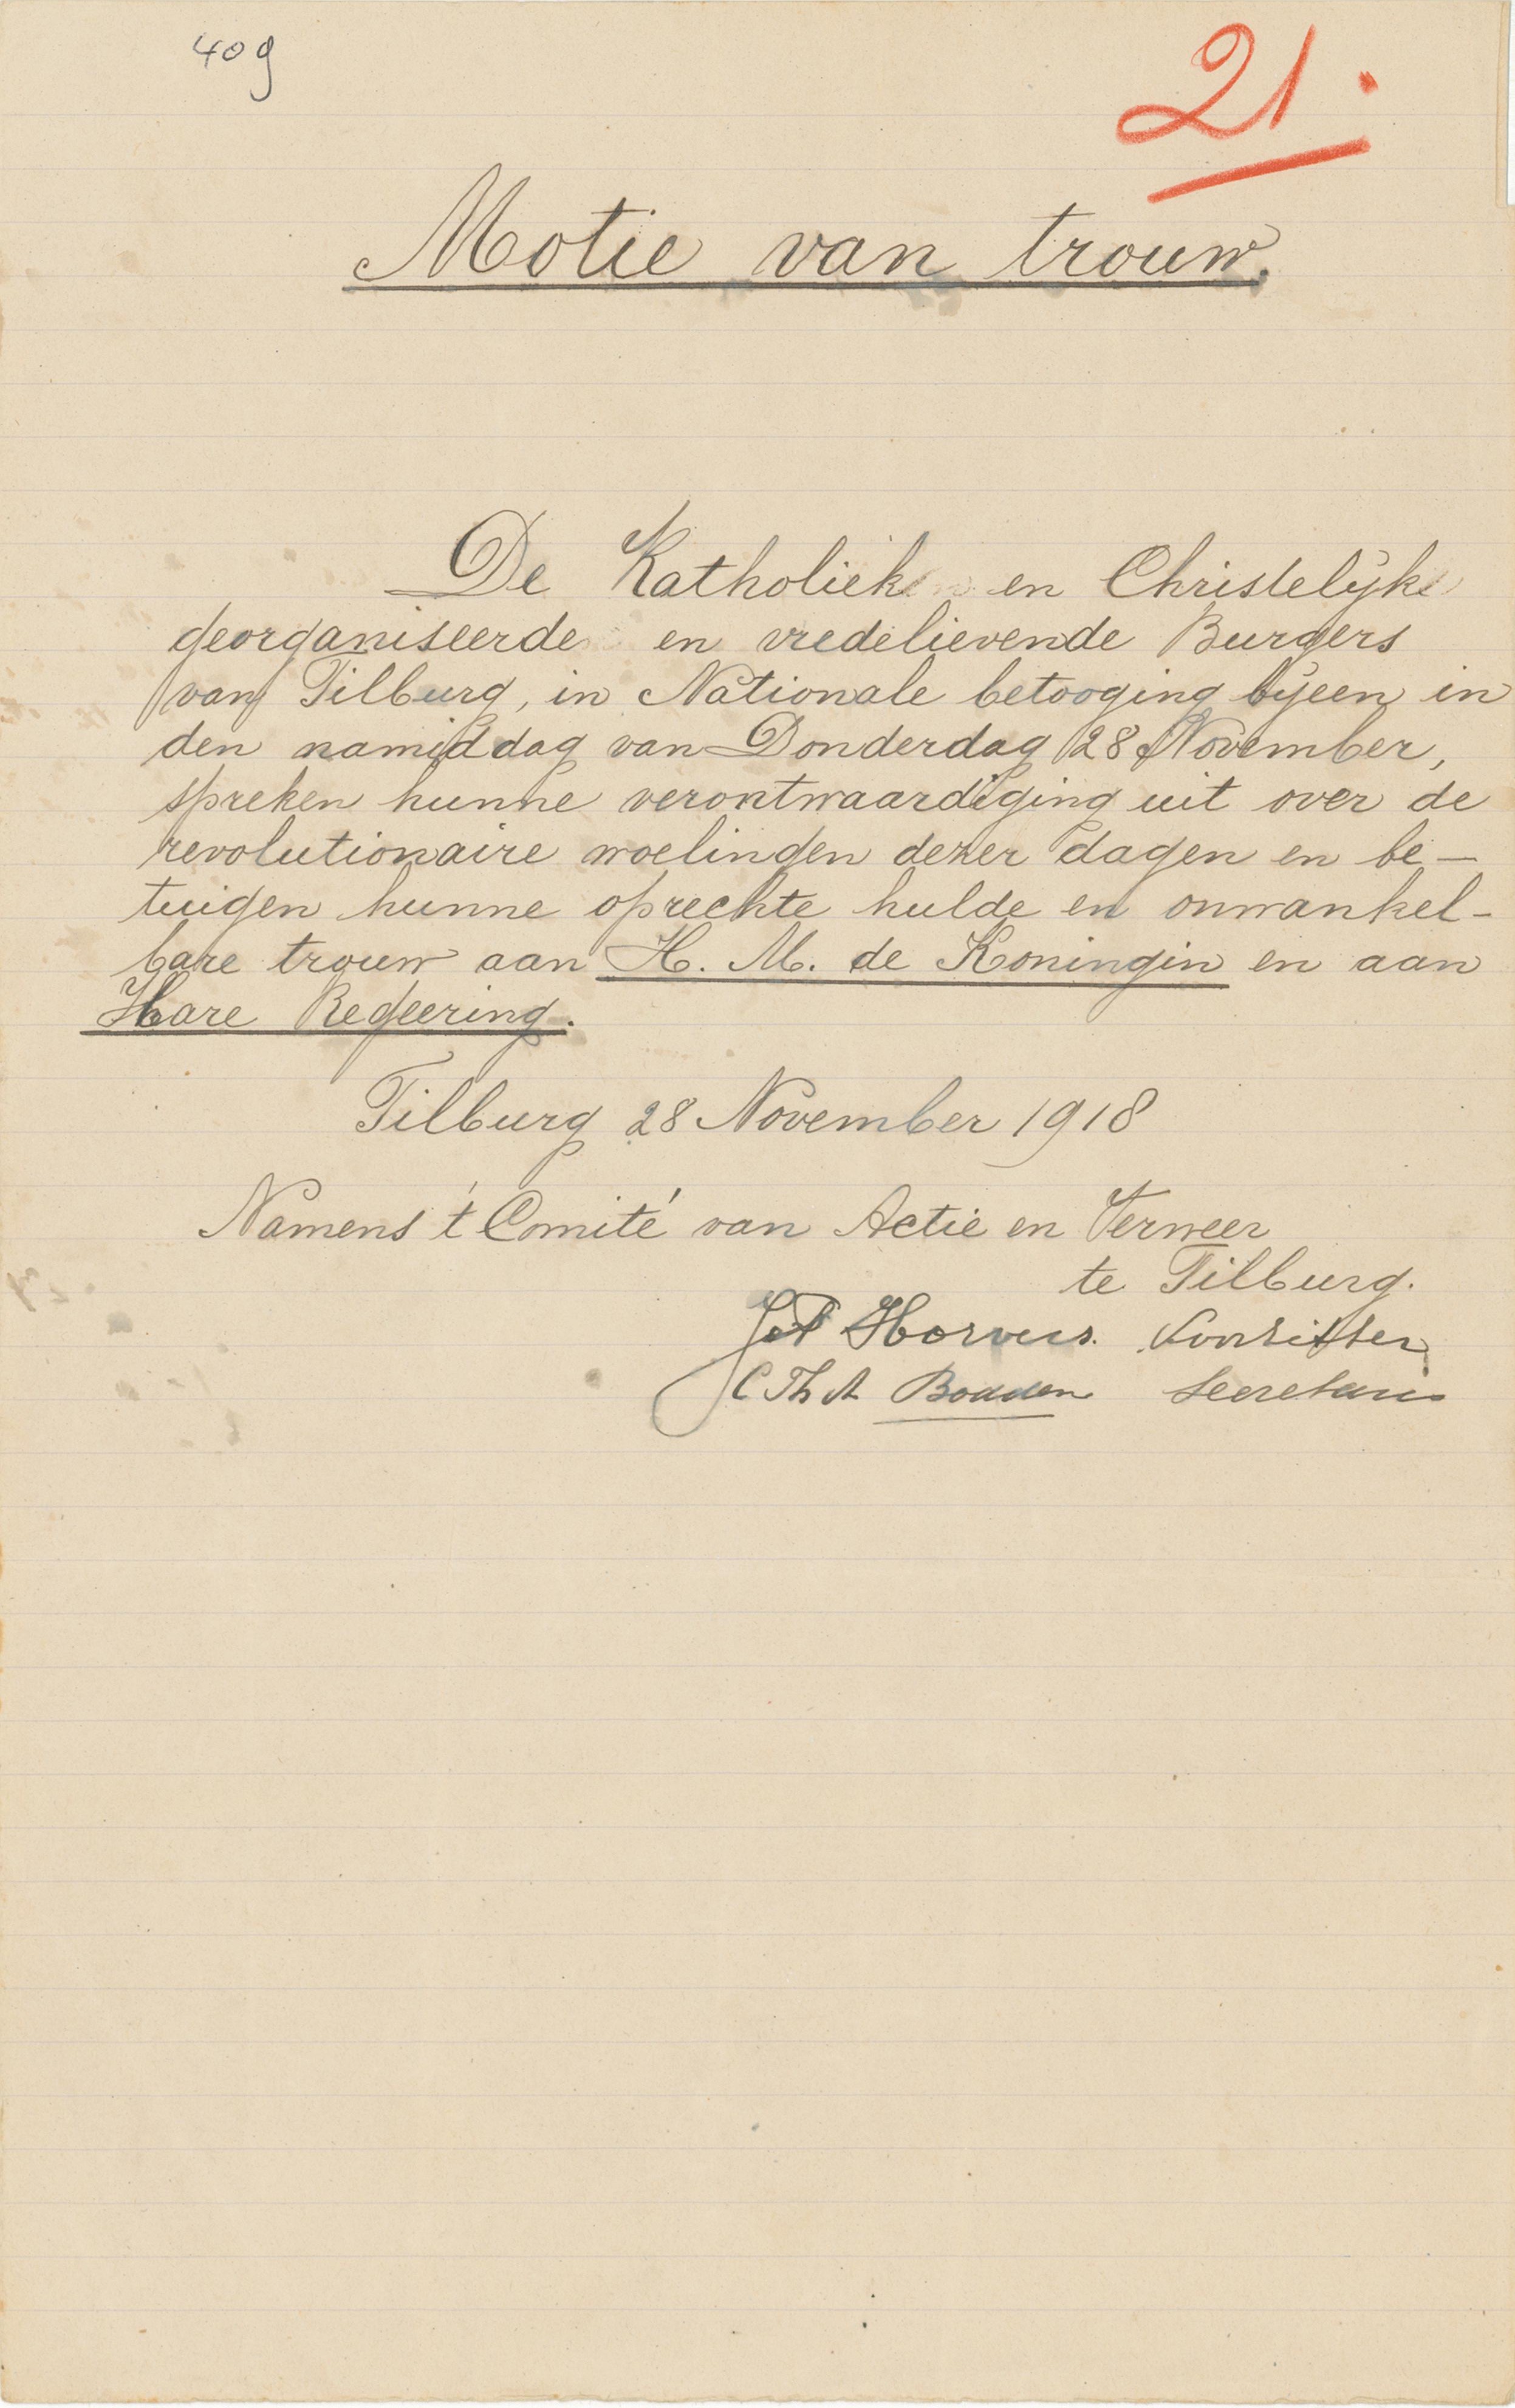 409
21.
Motie van trouw.
De Katholiek en Christelijke
georganiseerde en vredelievende Burgers
van Tilburg, in Nationale betooging bijeen in
den namiddag van Donderdag 28 November,
spreken hunne verontwaardiging uit over de
revolutionaire woelingen dezer dagen en be-
tuigen hunne oprechte hulde en onwankel-
bare trouw aan H. M. de Koningin en aan
Hare Regeering.
Tilburg 28 November 1918
Namens 't Comité van Actie en Verweer
te Tilburg.
Voorzitter
C Th A Secretaris